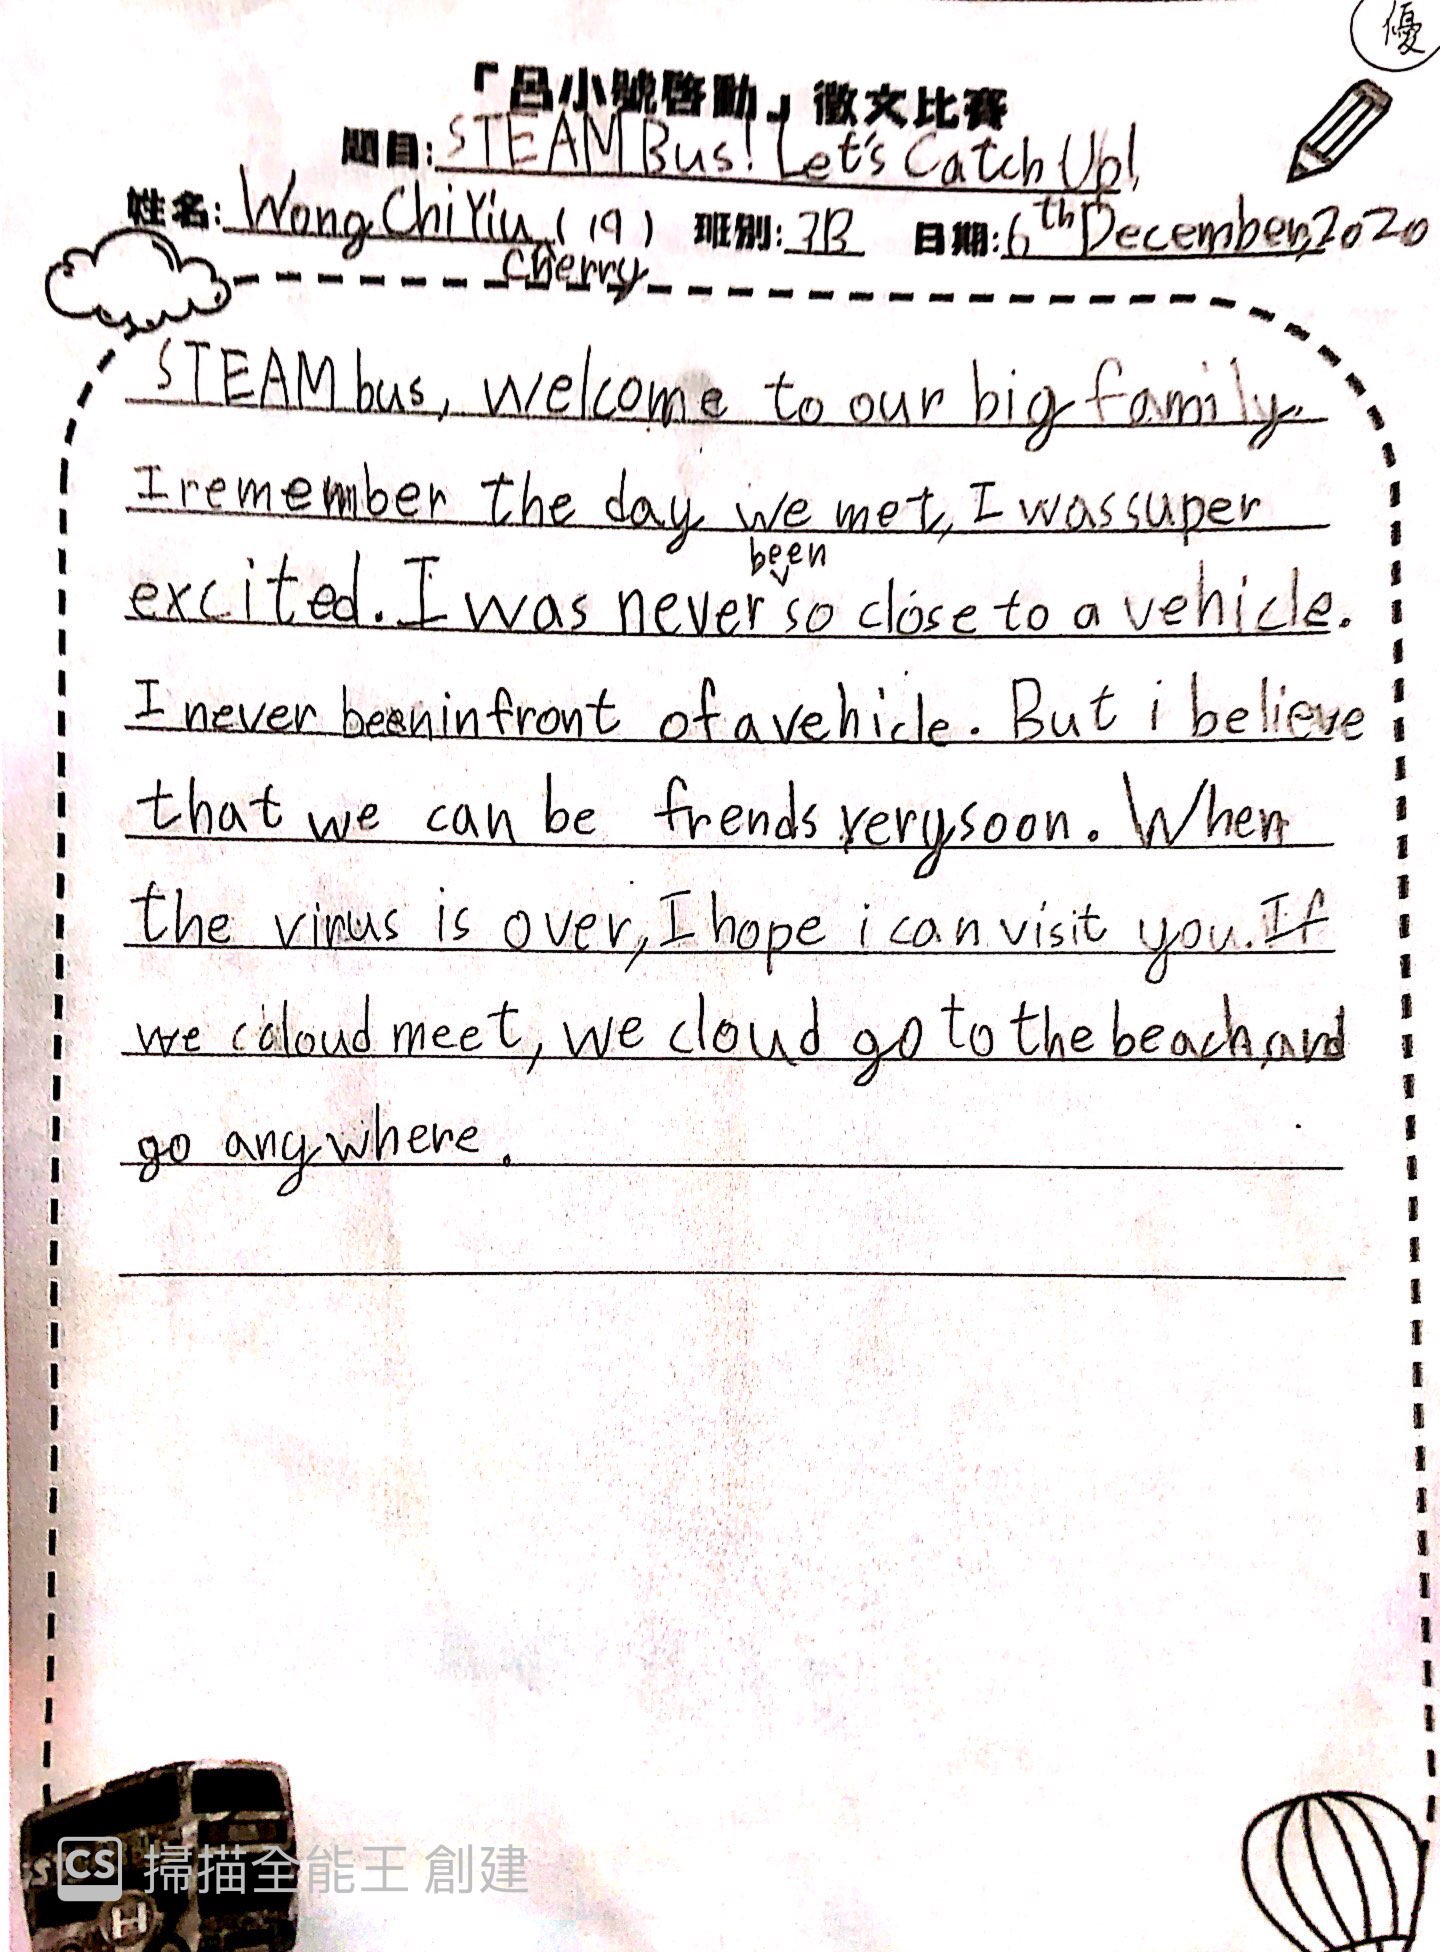 優
「呂小號啓動」徵文比賽
題目: STEAM Bus! Let's Catch Up!
姓名: Wong Chi Yiu (19) 班別: 3B 日期: 6th December, 2020
Cherry
STEAM bus, welcome to our big family.
I remember the day we met, I was super
been
excited. I was never so close to a vehicle.
I never been in front of a vehicle. But i believe
that we can be frends very soon. When
the virus is over, I hope i can visit you. If
we cloud meet, we cloud go to the beach, and
go anywhere.
CS 掃描全能王 創建
H